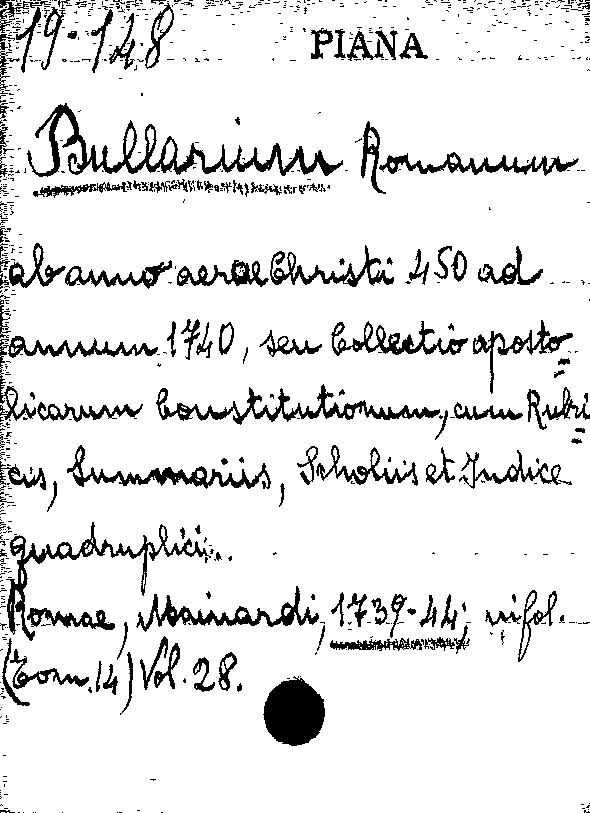 19-148 PIANA
Bullarium Romanum
ab anno aerae Christi 450 ad
annum 1740, seu Collectio aposto=
licarum Constitutionum, cum Rubri=
cis, Summariis, Scholiis et Indice
quadruplici..
Romae, Mainardi, 1739-44; in fol.
(Tom. 14) Vol. 28.